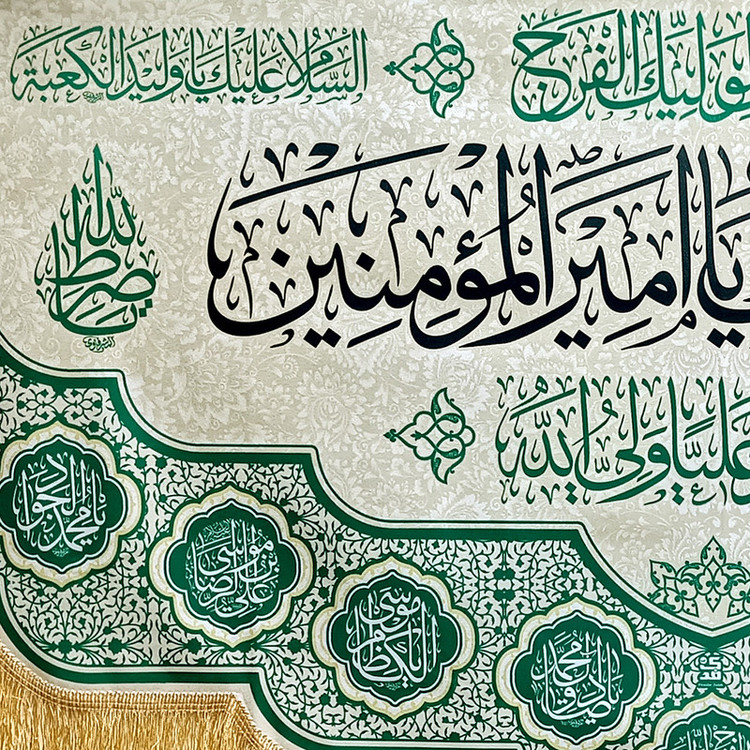 لوليك الفرج
السلام عليك يا وليد الكعبة
يا امير المؤمنين
صراط الله
عليا ولي الله
يا محمد الجواد
علي بن موسى الرضا
موسى الكاظم
محمد صادق